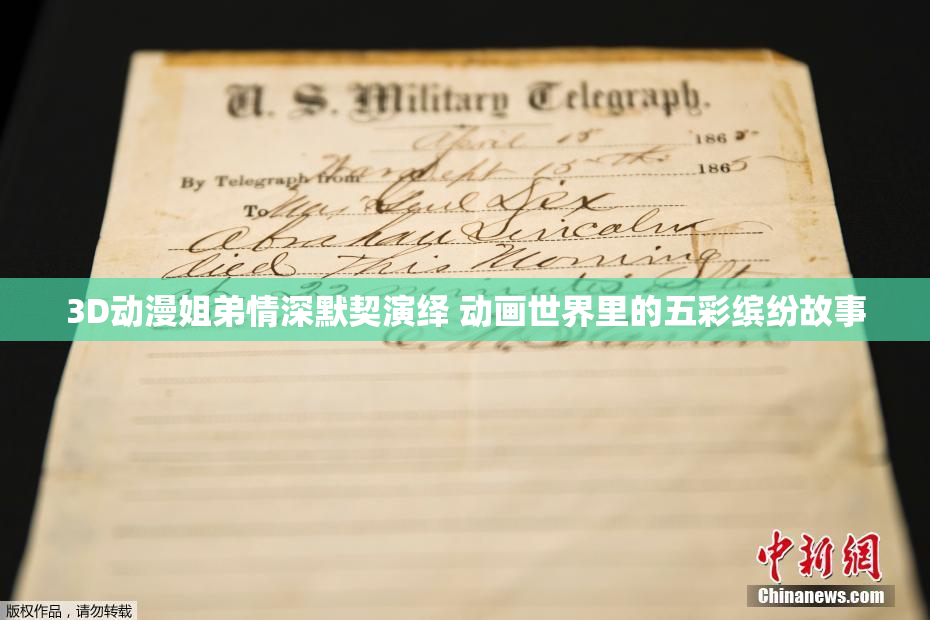 U. S. Military Telegraph.
April 15 1865
By Telegraph from War Dept 15th 1865
To Maj Genl Dix
Abraham Lincoln
died This Morning
at 22 minutes after
3D动漫姐弟情深默契演绎 动画世界里的五彩缤纷故事
E. M. Stanton
中新网
Chinanews.com
版权作品，请勿转载